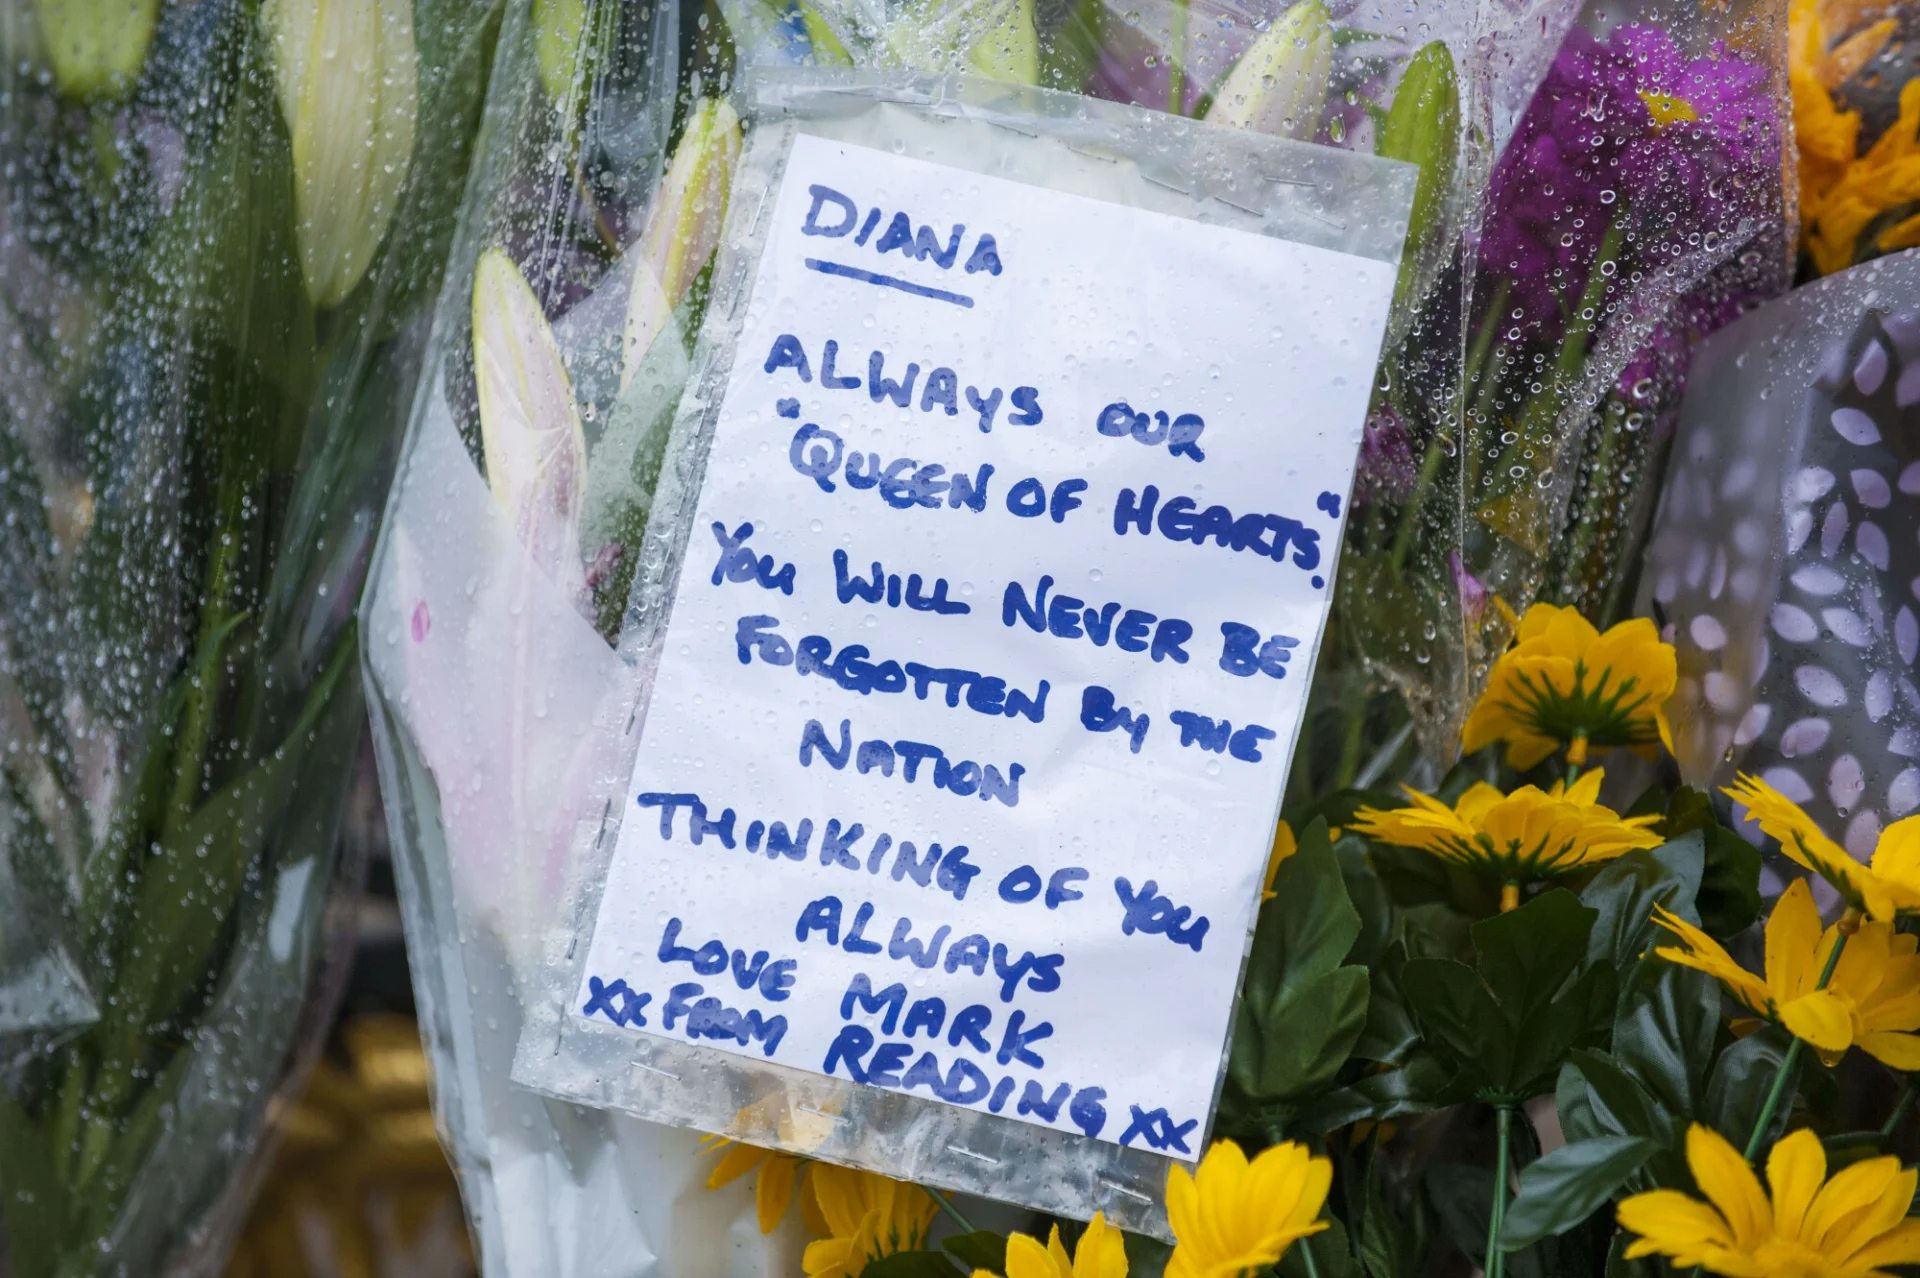 DIANA
ALWAYS OUR
"QUEEN OF HEARTS".
YOU WILL NEVER BE
FORGOTTEN BY THE
NATION
THINKING OF YOU
ALWAYS
LOVE MARK
XX FROM READING XX